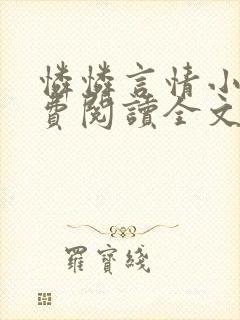 憐憐言情小
費閱讀全文
羅寶綫